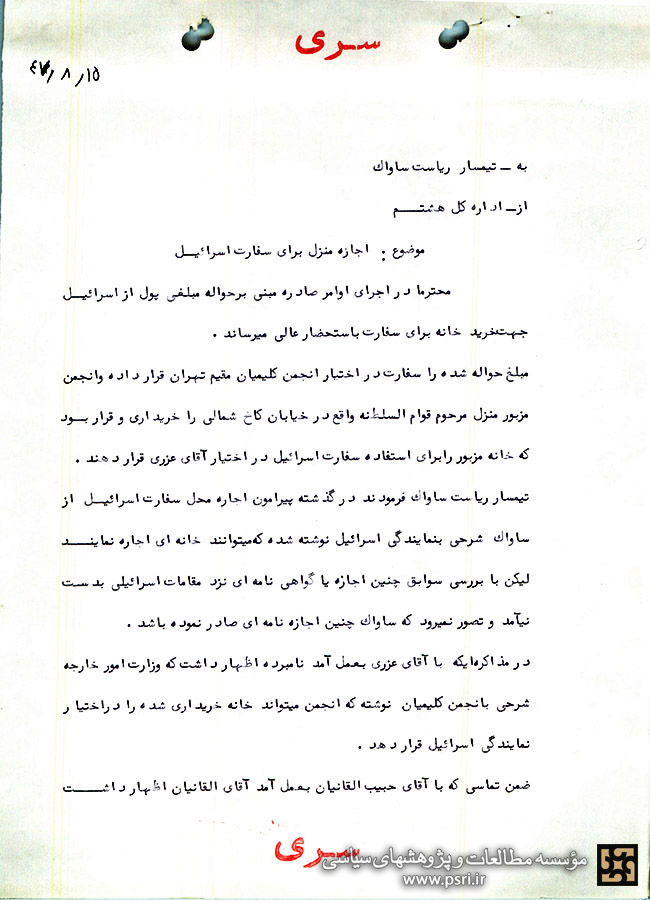 سـری
۴۷/۸/۱۵
به ـ تیمسار ریاست ساواك
از ـ اداره کل هشتـــم
موضوع : اجازه منزل برای سفارت اسرائیــل
محترما در اجرای اوامر صادره مبنی برحواله مبلغی پول از اسرائیل
جهت‌خرید خانه برای سفارت باستحضار عالی میرساند .
مبلغ حواله شده را سفارت در اختیار انجمن کلیمیان مقیم تهران قرار داده وانجمن
مزبور منزل مرحوم قوام السلطنه واقع در خیابان کاخ شمالی را خریداری و قرار بــود
که خانه مزبور رابرای استفاده سفارت اسرائیل در اختیار آقای عزری قرار دهند .
تیمسار ریاست ساواك فرمودند در گذشته پیرامون اجاره محل سفارت اسرائیــل از
ساواك شرحی بنمایندگی اسرائیل نوشته شده که‌میتوانند خانه ای اجاره نماینــد
لیکن با بررسی سوابق چنین اجازه یا گواهی نامه ای نزد مقامات اسرائیلی بدست
نیآمد و تصور نمیرود که ساواك چنین اجازه نامه ای صادر نموده باشد .
در مذاکره‌ایکه با آقای عزری بعمل آمد نامبرده اظهار داشت‌که وزارت امور خارجه
شرحی بانجمن کلیمیان نوشته که انجمن میتواند خانه خریداری شده را دراختیار
نمایندگی اسرائیل قرار دهد .
ضمن تماسی که با آقای حبیب القانیان بعمل آمد آقای القانیان اظهار داشــت
سـری
مؤسسه مطالعات و پژوهشهای سیاسی
www.psri.ir